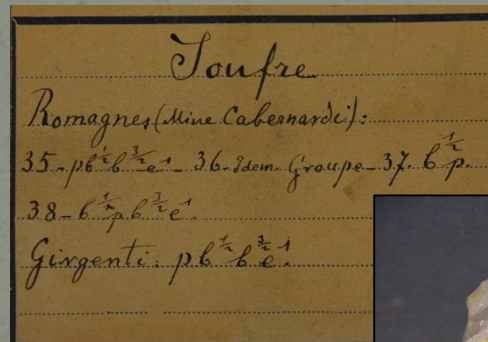 Soufre
Romagnes (Mine Cabernardi):
35 - p b^{1/2} b^{3/2} e^1 - 36 - Idem. Groupe - 37. b^{1/2} p.
38 - b^{1/2} p b^{3/2} e^1.
Girgenti: p b^{1/2} b^{3/2} e^1.